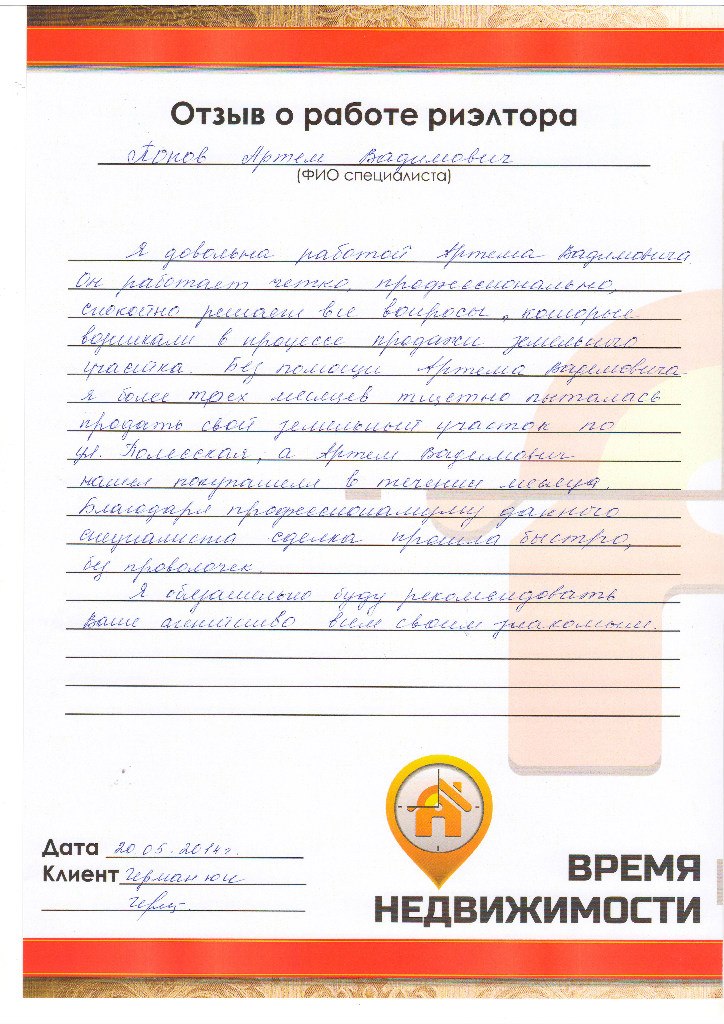 Отзыв о работе риэлтора
Попов Артем Вадимович
(ФИО специалиста)
Я довольна работой Артема Вадимовича.
Он работает четко, профессионально,
спокойно решает все вопросы, которые
возникали в процессе продажи земельного
участка. Без помощи Артема Вадимовича
я более трех месяцев тщетно пыталась
продать свой земельный участок по
ул. Полесская, а Артем Вадимович
нашел покупателя в течении месяца.
Благодаря профессионализму данного
специалиста сделка прошла быстро,
без проволочек.
Я обязательно буду рекомендовать
Ваше агентство всем своим знакомым.
Дата 20 05. 2014г.
Клиент Германюк
ВРЕМЯ
НЕДВИЖИМОСТИ